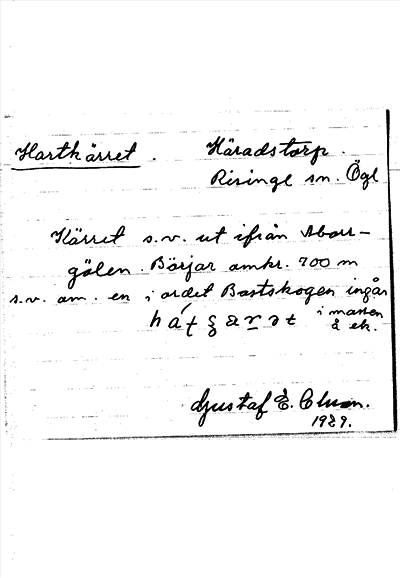 Hartkärret. Häradstorp.
Risinge sn. Ögl
Kärret s.v. ut ifrån Aborr-
gölen. Börjar omkr. 700 m
s.v. om. en i ordet Bastskogen ingår
i marken
å ek.
Gustaf E.
1929.